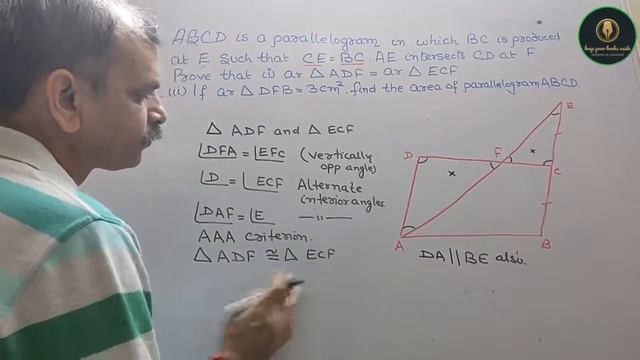 ABCD is a parallelogram in which BC is produced
at E such that CE = BC. AE intersects CD at F.
Prove that (i) ar △ ADF = ar △ ECF
(ii) If ar △ DFB = 3cm², find the area of parallelogram ABCD.
△ ADF and △ ECF
∠DFA = ∠EFC (vertically
opp angle)
∠D = ∠ECF Alternate
interior angles
∠DAF = ∠E —„—
AAA criterion.
△ ADF ≅ △ ECF
E
D
F
x
C
x
A
B
DA || BE also.
keep your books aside